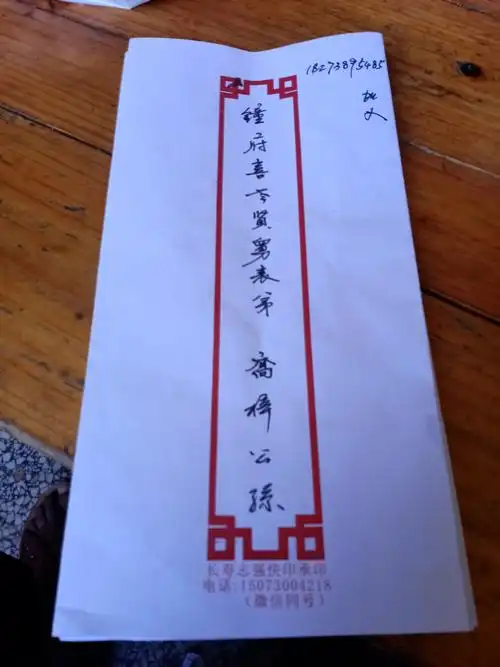 18273895485
鐘府喜賢舅表弟 喬梓公孫
长寿志强快印承印
电话:15073004218
(微信同号)